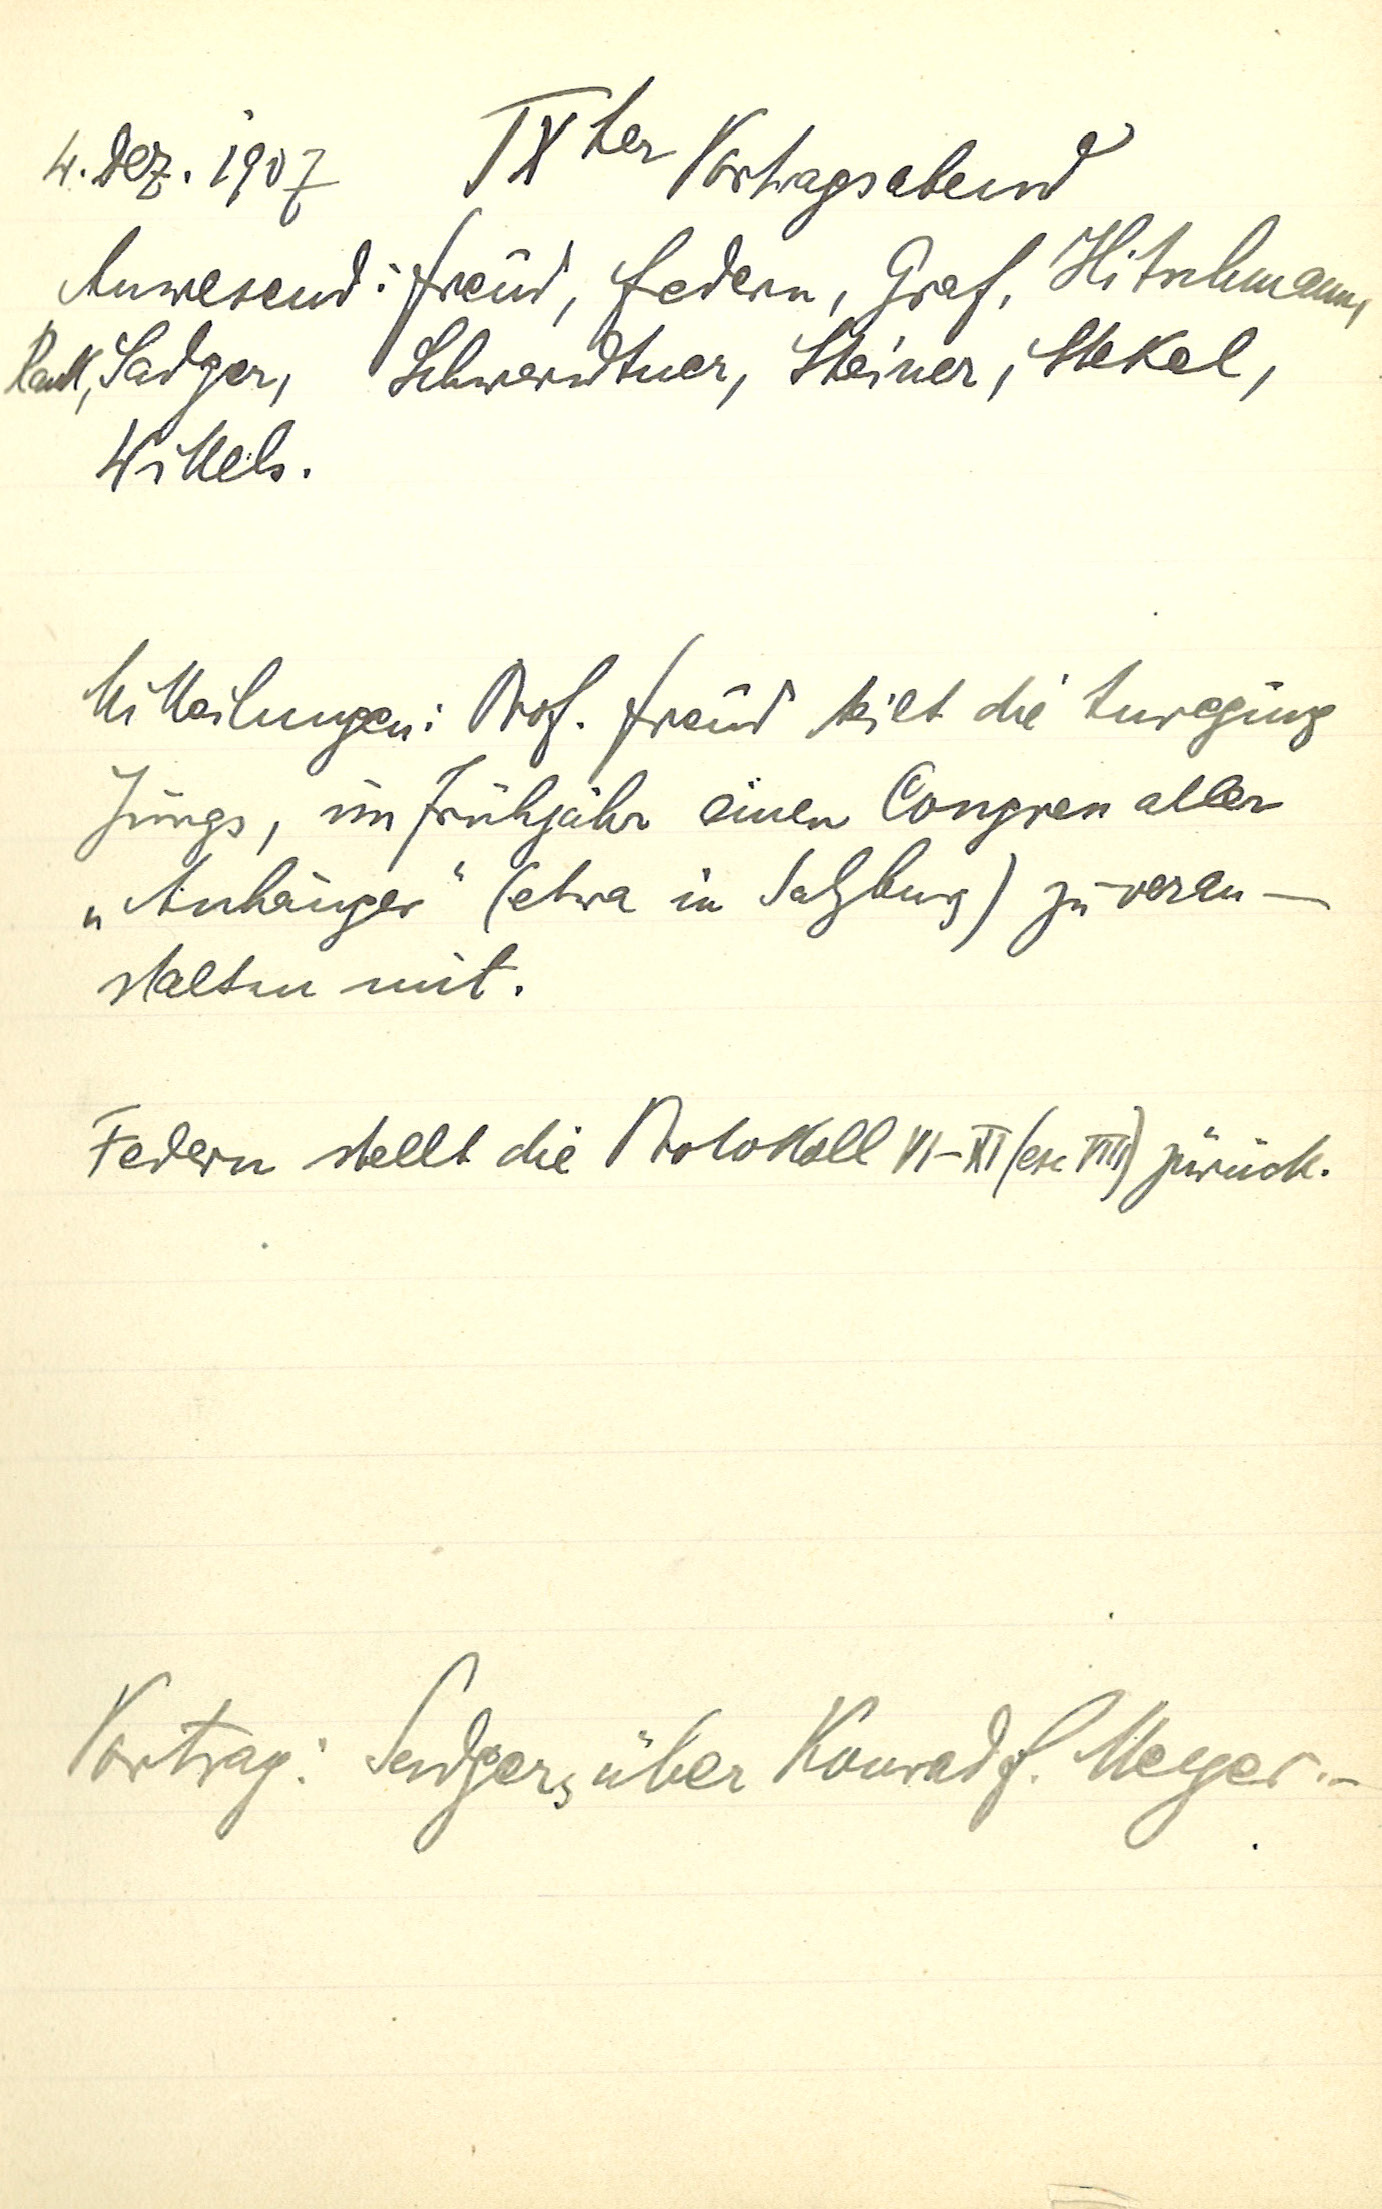 4. Dez. 1907 IXter Vortragsabend
Anwesend: Freud, Federn, Graf, Hitschmann,
Rank, Sadger, Schwerdtner, Steiner, Stekel,
Wittels.
Mitteilungen: Prof. Freud teilt die Anregung
Jungs, im Frühjahr einen Congress aller
„Anhänger“ (etwa in Salzburg) zu veran–
stalten mit.
Federn stellt die Protokoll VI–XI (exc VIII) zurück.
Vortrag: Sadger, über Konrad F. Meyer.–